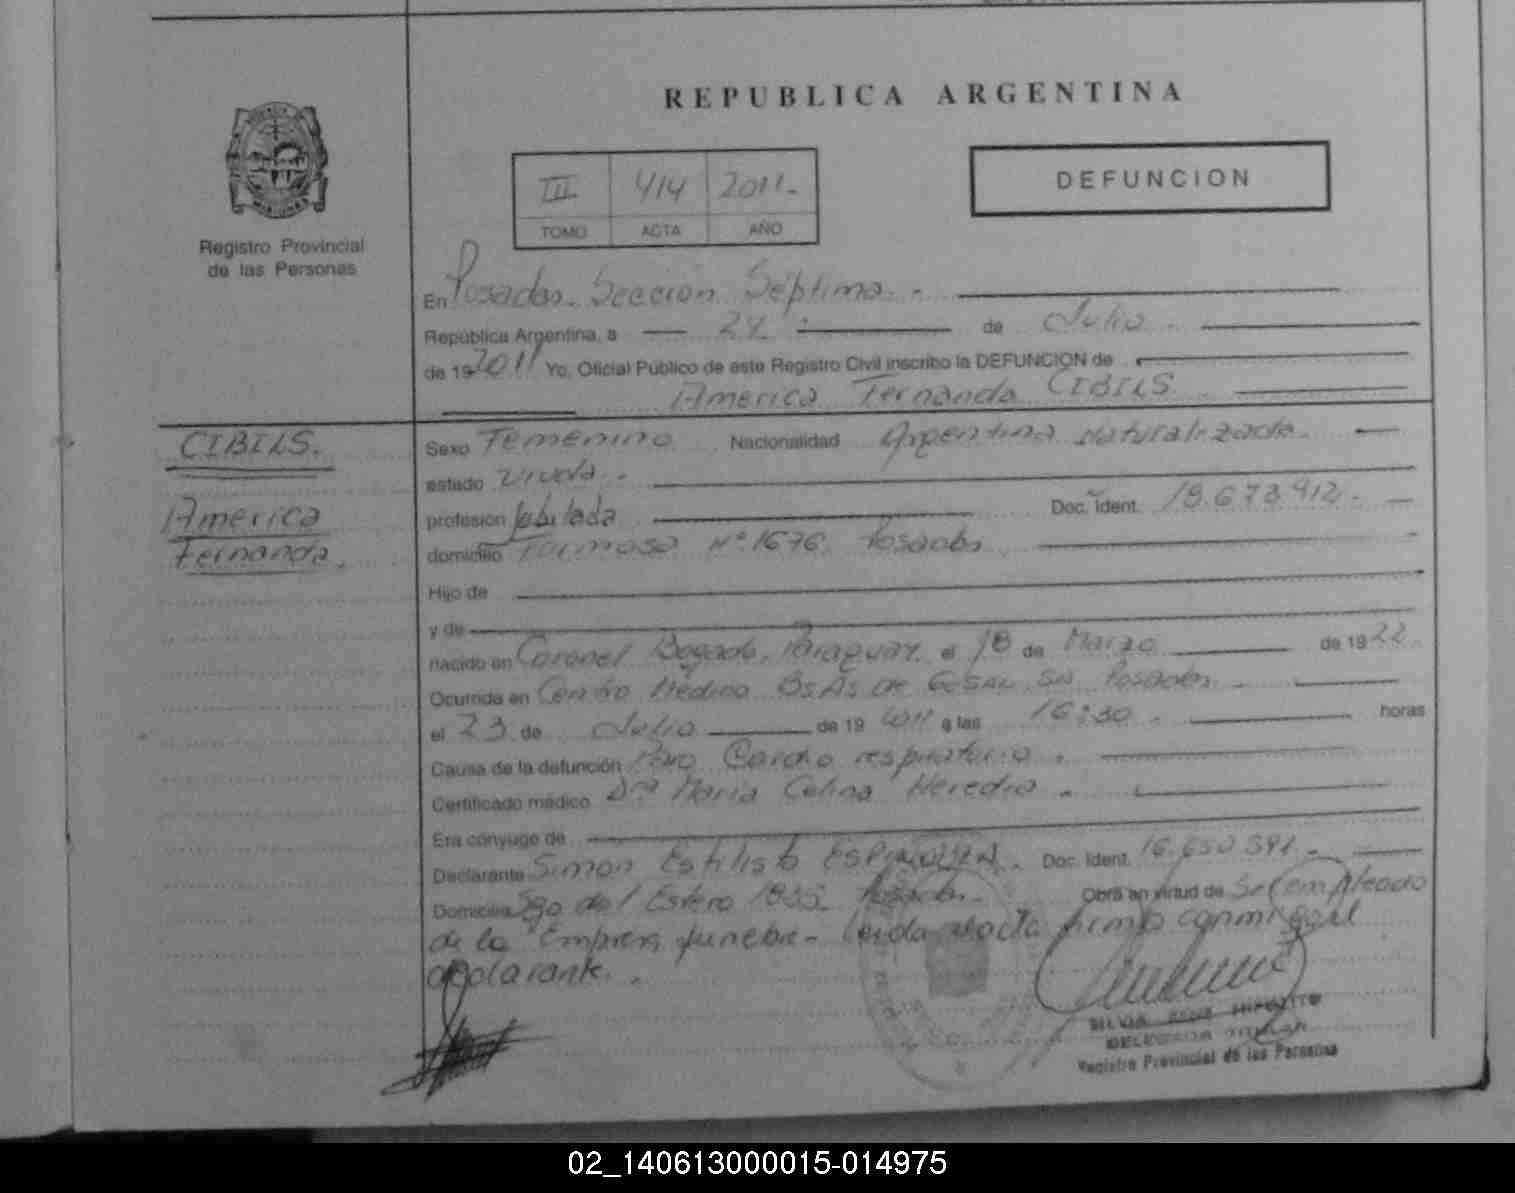 REPUBLICA ARGENTINA
III 414 2011.-
TOMO ACTA AÑO
DEFUNCION
MISIONES
Registro Provincial
de las Personas
En Posadas. Sección Séptima. -
República Argentina, a de Julio
de 19 2011 Yo, Oficial Público de este Registro Civil inscribo la DEFUNCION de
America Fernanda CIBILS
CIBILS.
America
Fernanda.
Sexo Femenino Nacionalidad Argentina Naturalizada.
estado Viuda. -
profesión Jubilada Doc. Ident. 18.673.912.-
domicilio Formosa Nº 1676 Posadas
Hijo de
y de
nacido en Coronel Bogado, Paraguay. el 18 de Marzo de 1922.
Ocurrida en Centro Médico BsAs de Posadas. -
el 23 de Julio de 19 2011 a las 16:30. horas
Causa de la defunción Paro Cardio respiratorio.
Certificado médico Dra Maria Celina Heredia.
Era cónyuge de
Declarante Simon Doc. Ident. 16.650.591.-
Domicilio Sgo del Estero Posadas.- Obra en virtud de Ser empleado
de la Empresa funebre.- Leída el acta firma conmigo el
declarante.
SILVIA
DELEGADA TITULAR
Registro Provincial de las Personas
02_140613000015-014975